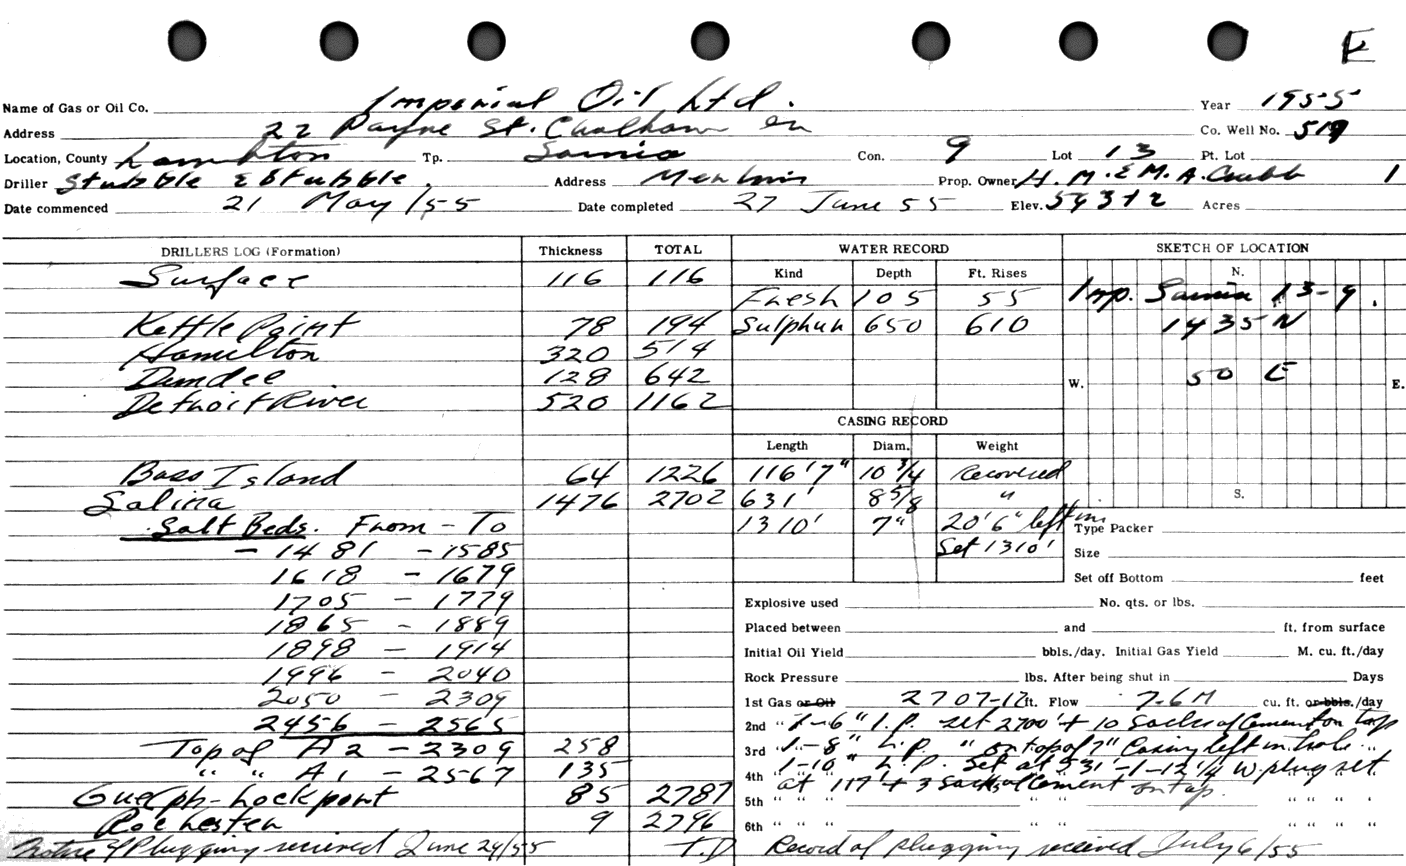 E
Name of Gas or Oil Co. Imperial Oil Ltd. Year 1955
Address 22 Payne St. Chatham On Co. Well No. 519
Location, County Lambton Tp. Sarnia Con. 9 Lot 13 Pt. Lot
Driller Stubble & Stubble, Address Merlin Prop. Owner H. M. & M. A. Cubb 1
Date commenced 21 May /55 Date completed 27 June 55 Elev. Acres
DRILLERS LOG (Formation) Thickness TOTAL WATER RECORD SKETCH OF LOCATION
Surface 116 116 Kind Depth Ft. Rises N.
Fresh 105 55 Imp. Sarnia 13-9.
Kettle Point 78 194 Sulphur 650 610 1435 N
Hamilton 320 514
Dundee 128 642 W. 50 E E.
Detroit River 520 1162
CASING RECORD
Length Diam. Weight
Bass Island 64 1226 116'7" 10 3/4 Recovered
Salina 1476 2702 631' 8 5/8 " S.
Salt Beds. From - To 1310' 7" 20'6" left in Type Packer
- 1481 - 1585 Set 1310' Size
1618 - 1679 Set off Bottom feet
1705 - 1779 Explosive used No. qts. or lbs.
1865 - 1889 Placed between and ft. from surface
1898 - 1914 Initial Oil Yield bbls./day. Initial Gas Yield M. cu. ft./day
1996 - 2040 Rock Pressure lbs. After being shut in Days
2050 - 2309 1st Gas or Oil 2707-12 ft. Flow 7.6M cu. ft. or bbls./day
2456 - 2565 2nd " 1-6" L.P. set 2700' + 10 Sacks of Cement on top
Top of A2 - 2309 258 3rd 1-8" L.P. " on top of 7" Casing left in hole " "
" " A1 - 2567 135 4th 1-10" L.P. Set at 531'-1-12 1/4 W. plug set
Guelph-Lockport 85 2787 at 117' + 3 Sacks of Cement on top.
5th " " " " " " " "
Rochester 9 2796 6th " " " " " " " "
Notice of Plugging received June 29/55 T.D Record of plugging received July 6/55